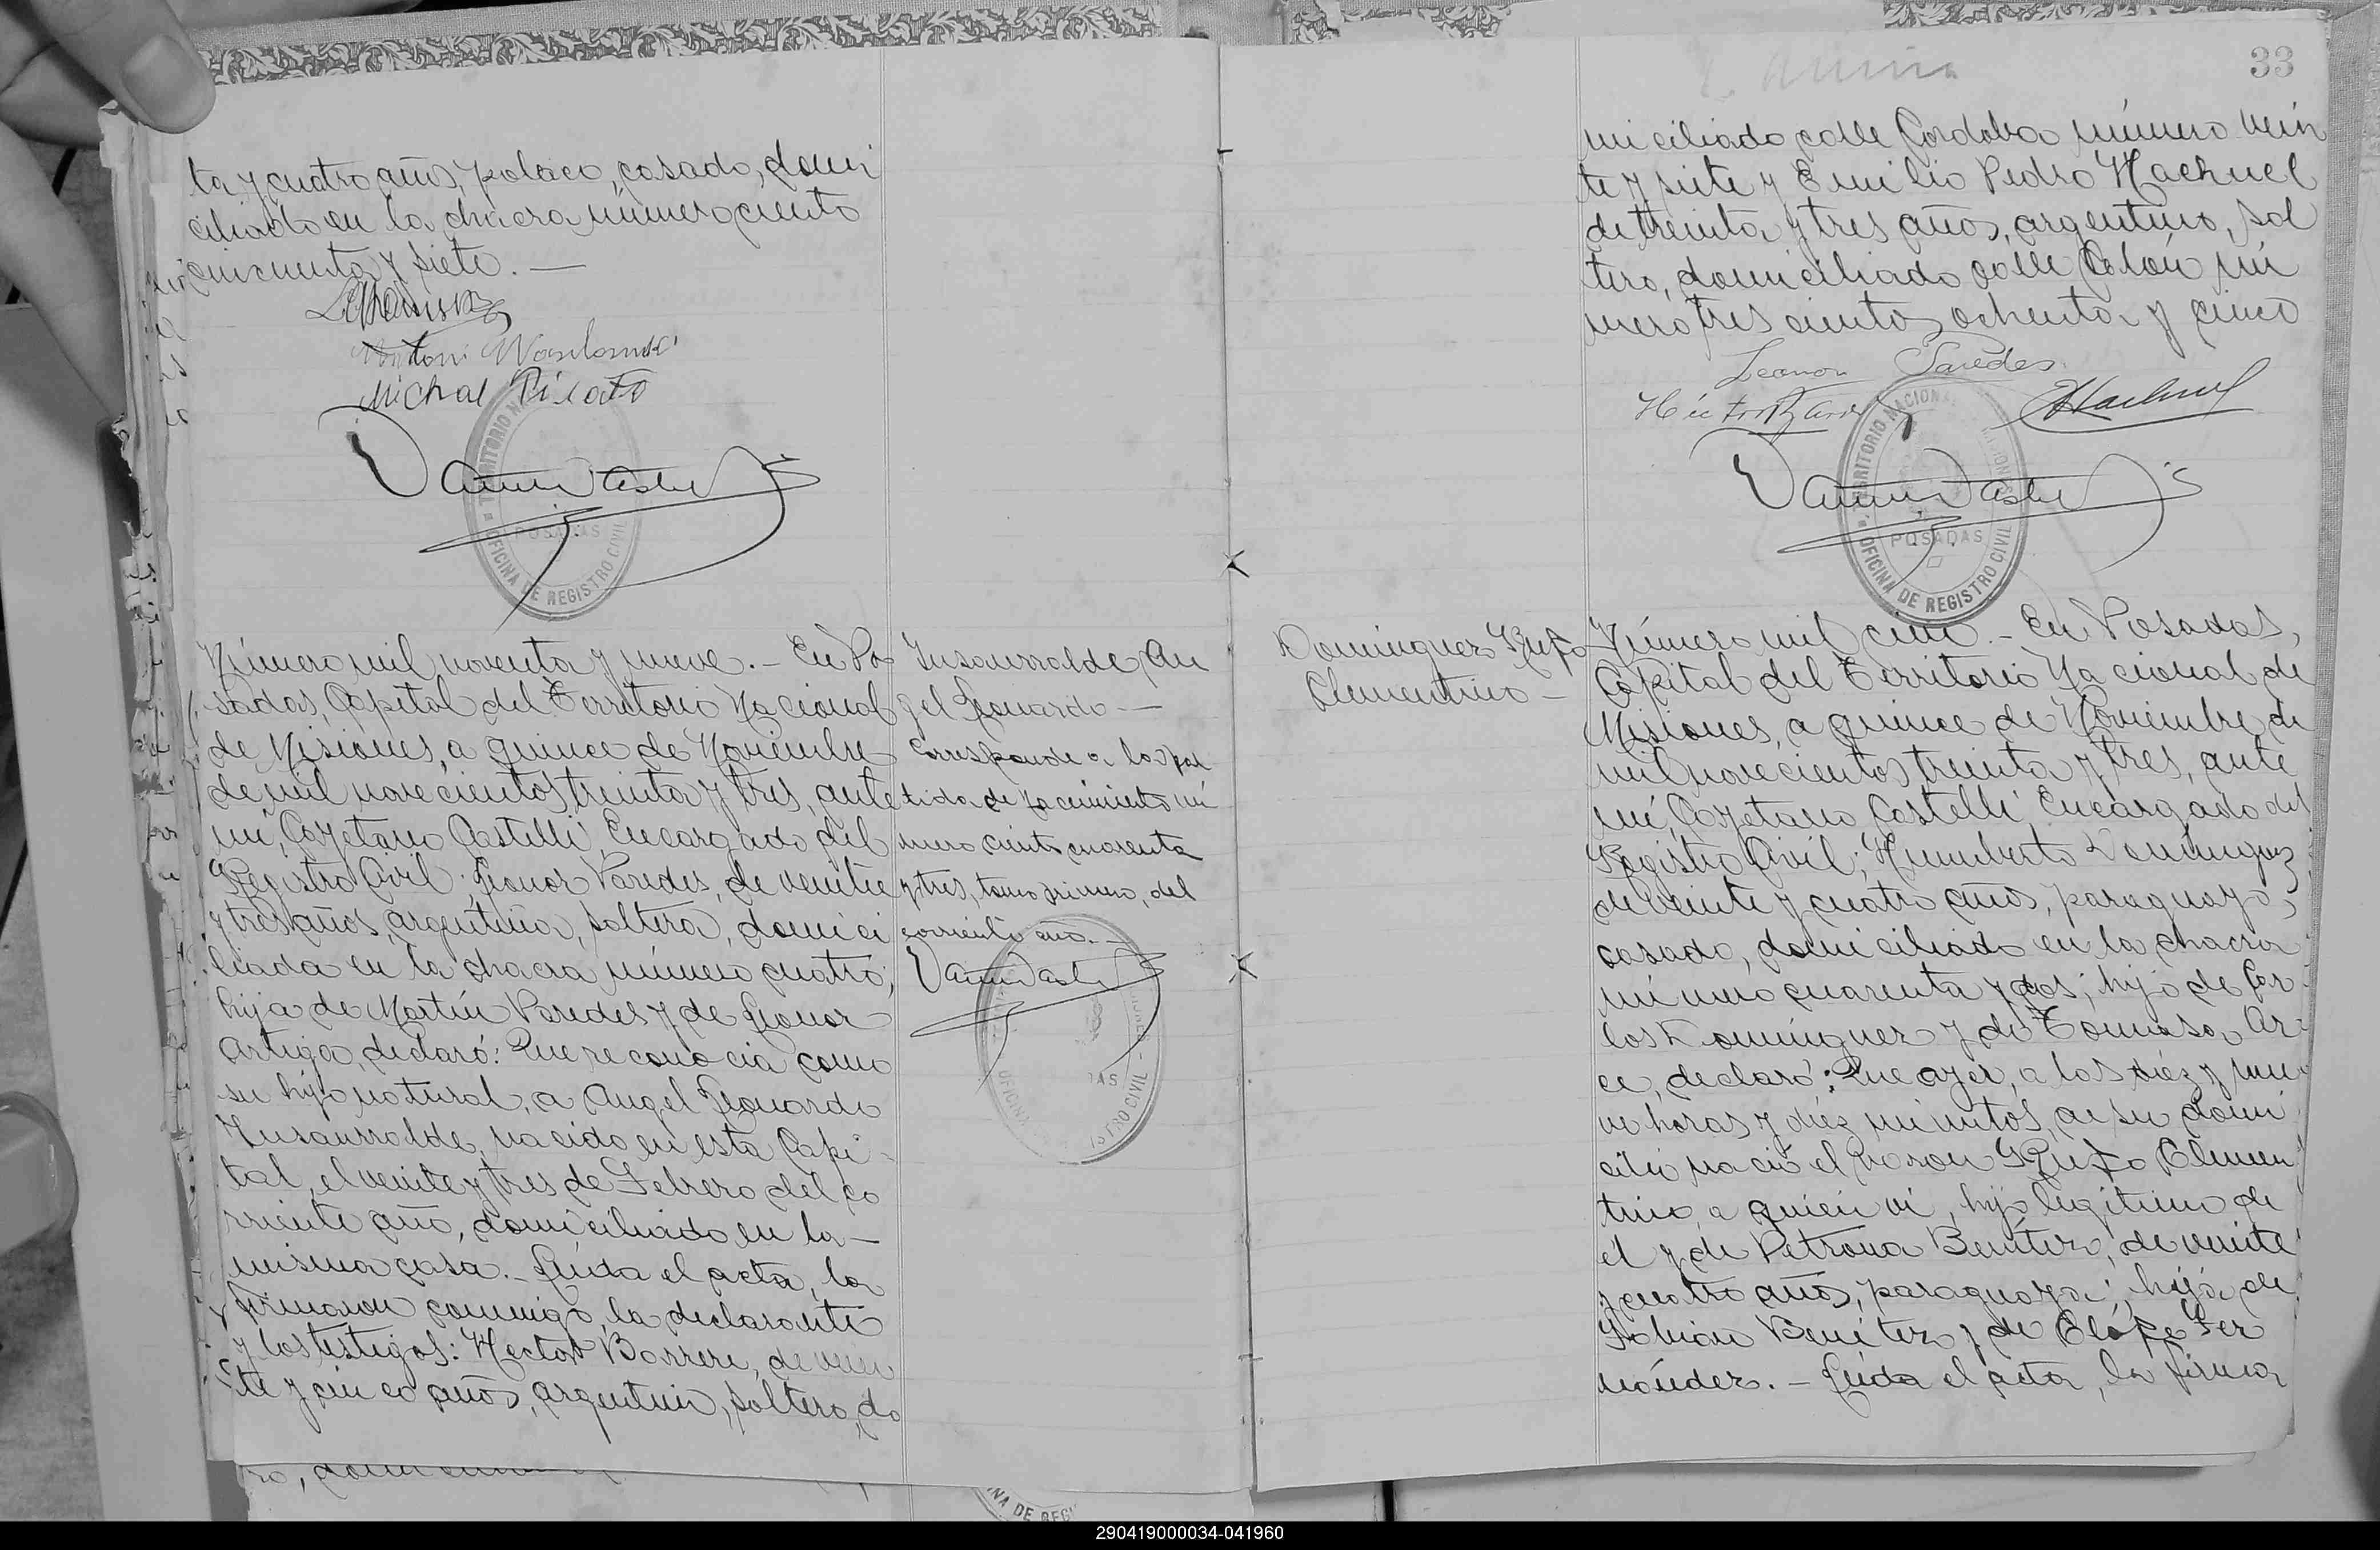 ta y cuatro años, polaco, casado, domi
ciliado en la chacra número ciento
cincuenta y siete. —
Michal Pilato
TERRITORIO
POSADAS
OFICINA DE REGISTRO CIVIL
Número mil noventa y nueve. - En Po
sadas, Capital del Territorio Nacional
de Misiones, a quince de Noviembre
de mil novecientos treinta y tres, ante
mí, Cayetano Castelli, Encargado del
Registro Civil; Leonor Paredes, de veinte
y tres años, argentina, soltera, domici
liada en la chacra número cuatro;
hija de Martín Paredes y de Leonor
Artiga, declaró: Que reconocia como
su hijo natural, a Angel Leonardo
Insaurralde, nacido en esta Capi-
tal, el veinte y tres de Febrero del co
rriente año, domiciliado en la -
misma casa. - Leída el acta, la
firmaron conmigo, la declarante
y los testigos: Hector Barrere, de vein
te y cinco años, argentino, soltero, do
Insaurralde An
gel Leonardo —
Corresponde a la par
tida de nacimiento nú
mero ciento cuarenta
y tres, tomo primero, del
corriente año. -
OFICINA
ISTRO CIVIL
33
miciliado calle Cordoba número vein
te y siete y Emilio Pedro Machuel
de treinta y tres años, argentino, sol
tero, domiciliado calle Colón nú
mero tres cientos ochenta y cinco
Leonor Paredes
TERRITORIO NACIONAL
POSADAS
OFICINA DE REGISTRO CIVIL
Domínguez Rufo
Clementino —
Número mil cien. - En Posadas,
Capital del Territorio Nacional de
Misiones, a quince de Noviembre de
mil novecientos treinta y tres, ante
mí, Cayetano Castelli, Encargado del
Registro Civil; Humberto Domínguez
de veinte y cuatro años, paraguayo,
casado, domiciliado en la chacra
número cuarenta y dos; hijo de Car
los Domínguez y de Tomasa Ar-
ce, declaró: Que ayer, a las diéz y nue
ve horas y diéz minutos, en su domi
cilio nació el varon Rufo Clemen
tino, a quién vi, hijo legítimo de
él y de Petrona Benítez, de veinte
y cuatro años, paraguaya; hija de
Fabián Benítez y de Fer
nández. - Leída el acta, la firma
NA DE REGI
290419000034-041960